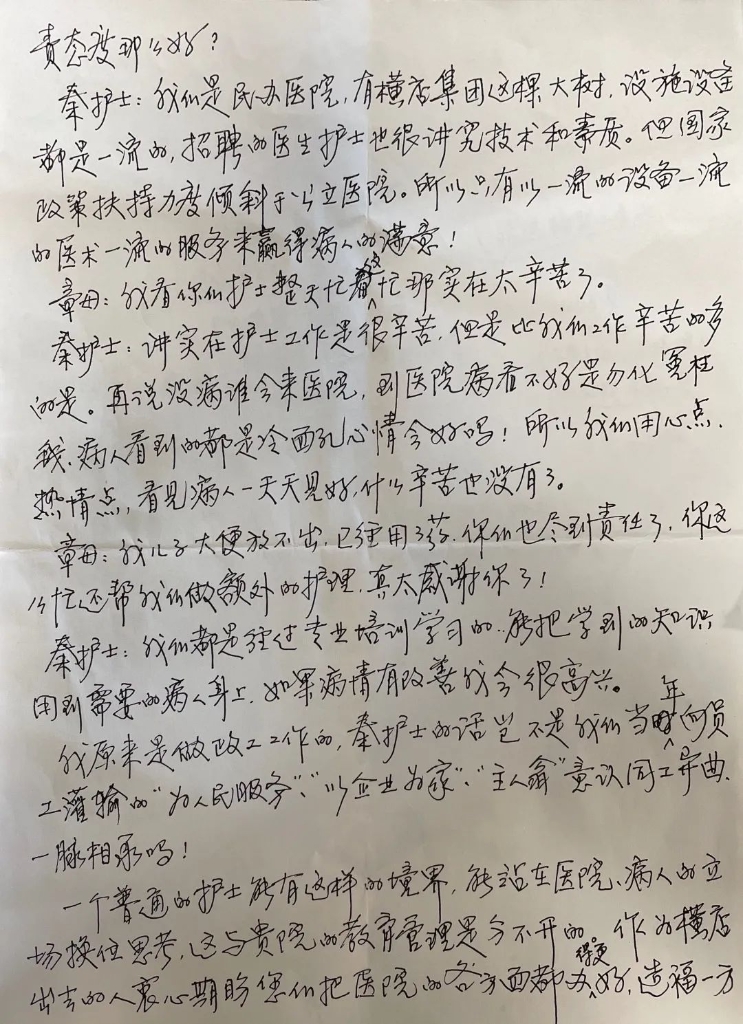 责态度那么好？
秦护士：我们是民办医院，有横店集团这棵大树，设施设备
都是一流的，招聘的医生护士也很讲究技术和素质。但国家
政策扶持力度倾斜于公立医院。所以只有以一流的设备一流
的医术一流的服务来赢得病人的满意！
章母：我看你们护士整天忙这忙那实在太辛苦了。
秦护士：讲实在护士工作是很辛苦，但是比我们工作辛苦的多
的是。再说没病谁会来医院，到医院病看不好是勿化冤枉
钱，病人看到的都是冷面孔心情会好吗！所以我们用心点，
热情点，看见病人一天天见好，什么辛苦也没有了。
章母：我儿子大便放不出，已经用了药，你们也尽到责任了，你这
么忙还帮我们做额外的护理，真太感谢你了！
秦护士：我们都是经过专业培训学习的，能把学到的知识
用到需要的病人身上，如果病情有改善我会很高兴。
我原来是做政工工作的，秦护士的话岂不是我们当年向员
工灌输的“为人民服务”、“以企业为家”、“主人翁”意识同工异曲、
一脉相承吗！
一个普通的护士能有这样的境界，能站在医院、病人的立
场换位思考，这与贵院的教育管理是分不开的。作为横店
出去的人衷心期盼您们把医院的各方面都办得更好，造福一方